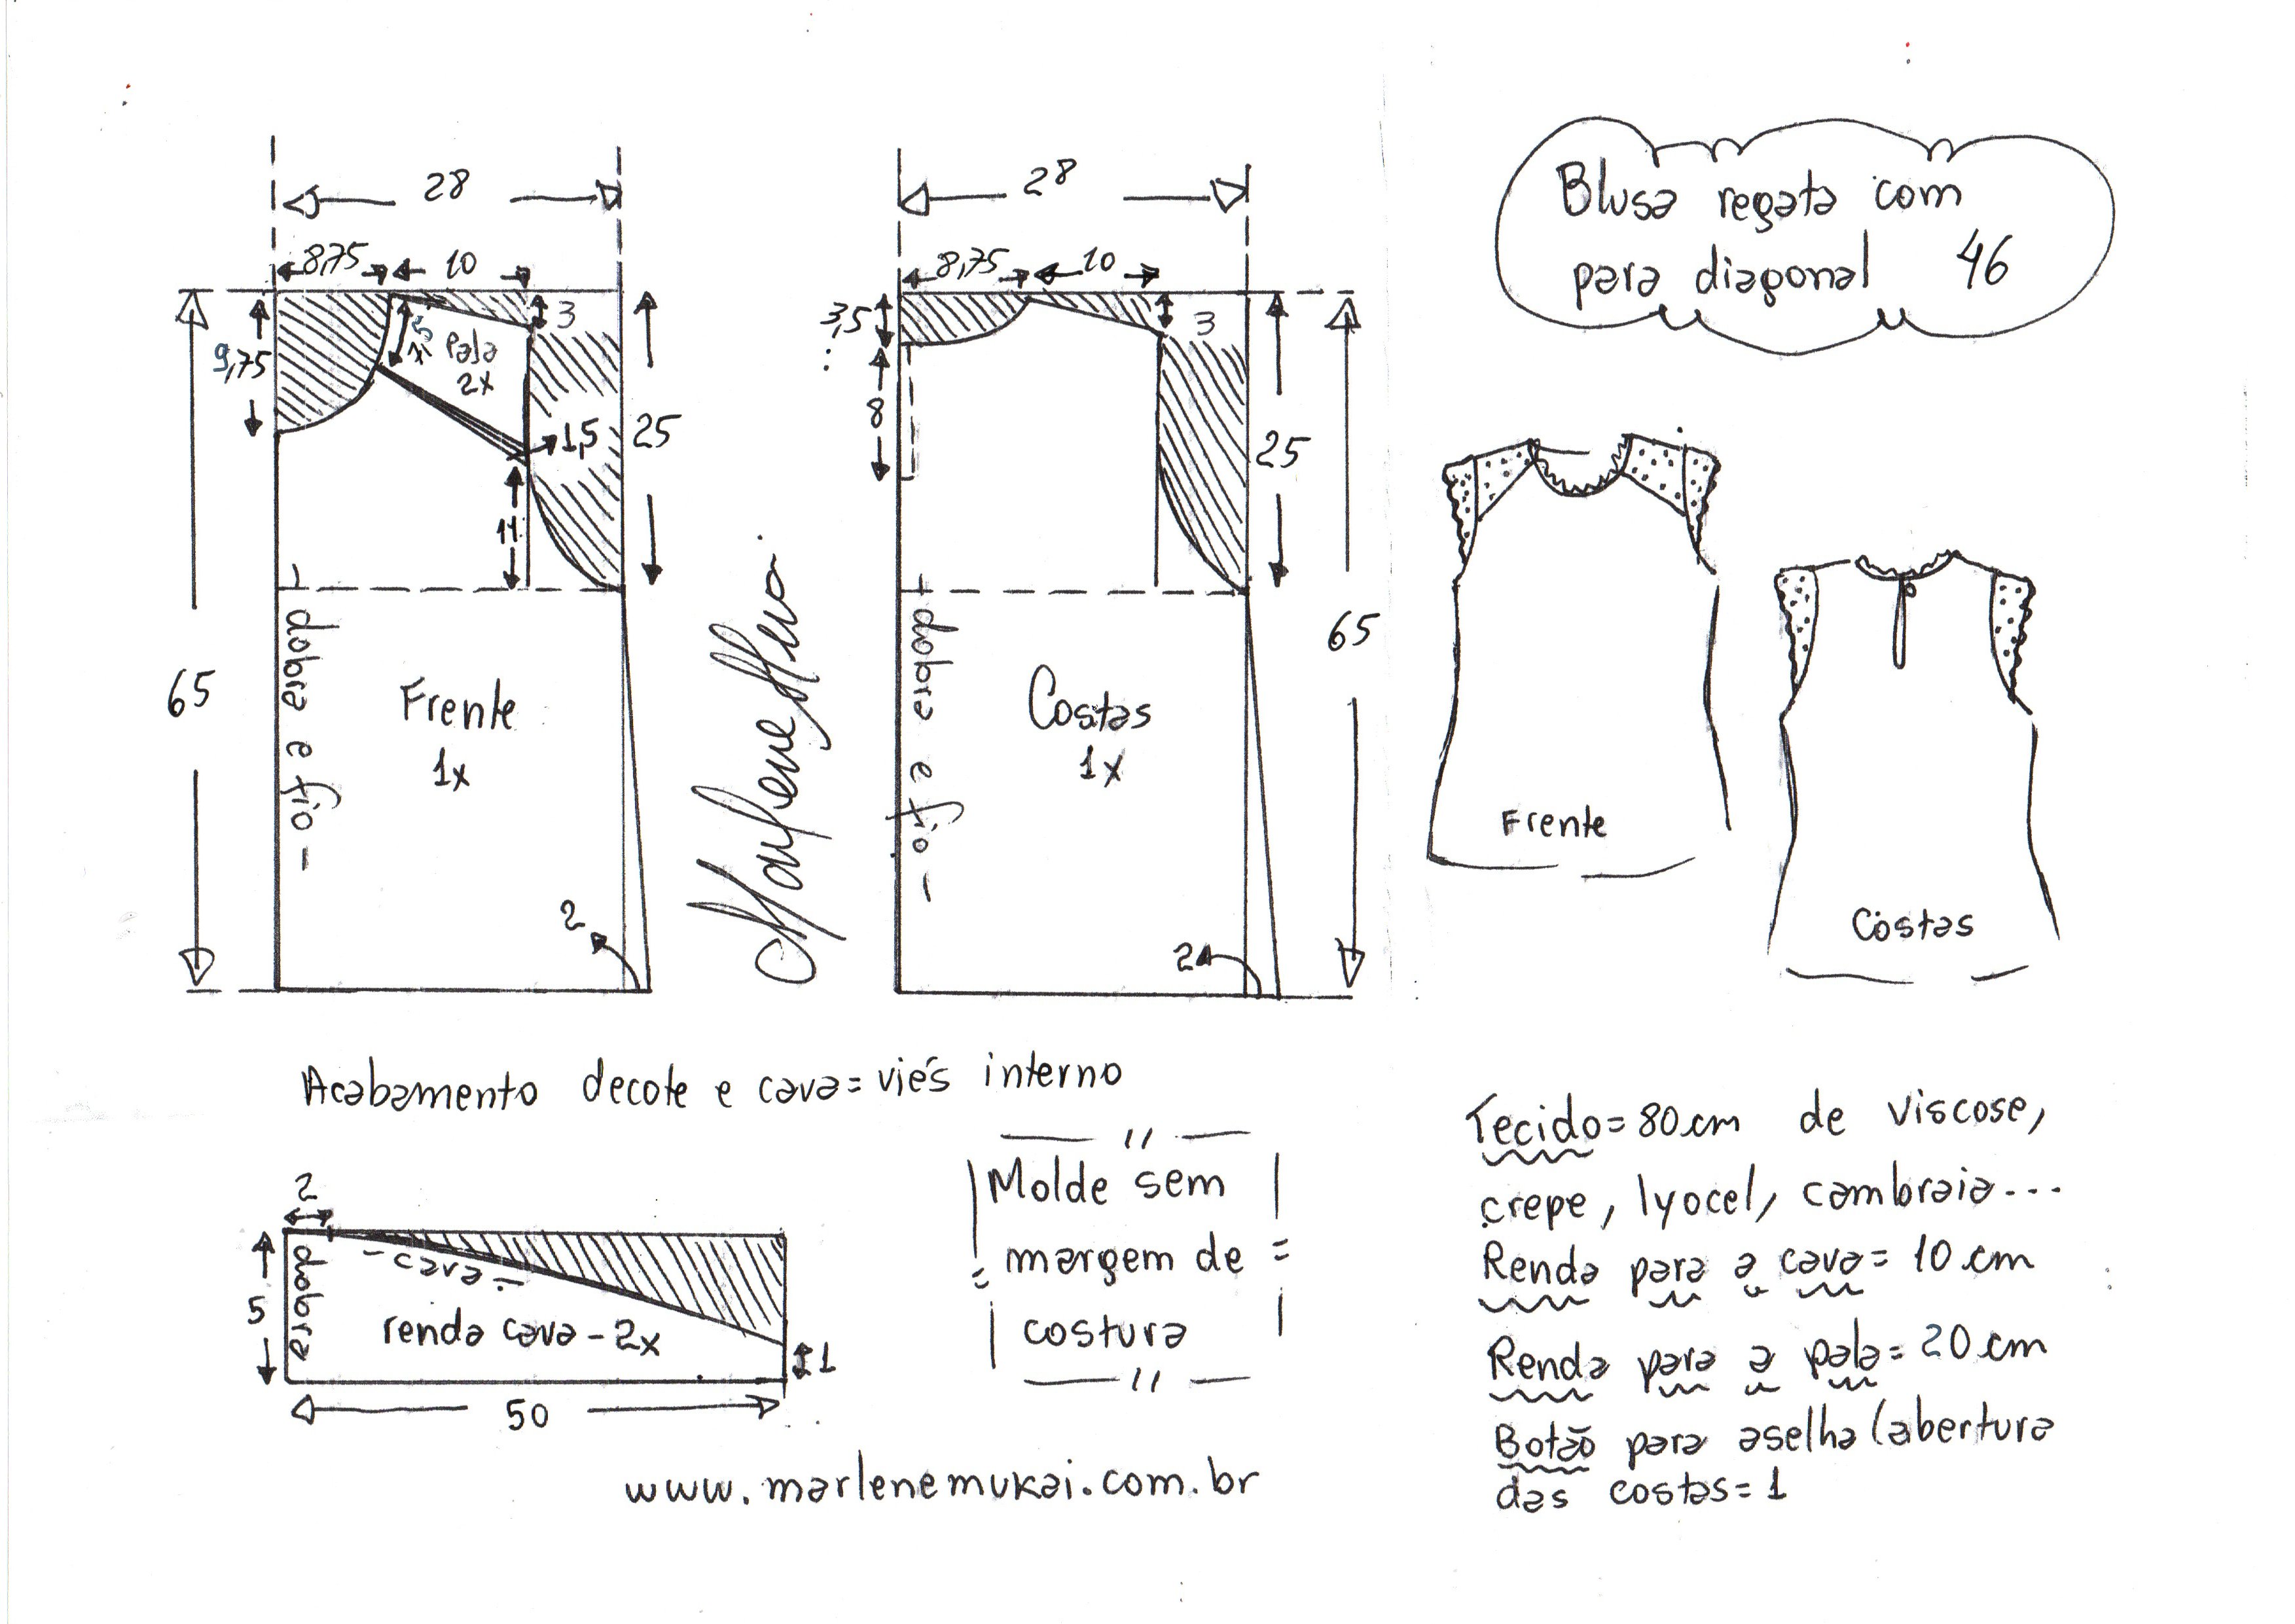 Blusa regata com
para diagonal 46
28
8,75
10
9,75
5
3
Pala
2x
1,5
25
11
65
dobra e fio
Frente
1x
2
Marlene Mukai
28
8,75
10
3,5
3
8
25
65
dobra e fio
Costas
1x
2
Frente
Costas
Acabamento decote e cava= viés interno
2
dobra
cava
5
renda cava - 2x
1
50
Molde sem
margem de
costura
www.marlenemukai.com.br
Tecido= 80 cm de viscose,
crepe, lyocel, cambraia...
Renda para a cava= 10 cm
Renda para a pala= 20 cm
Botão para aselha (abertura
das costas= 1